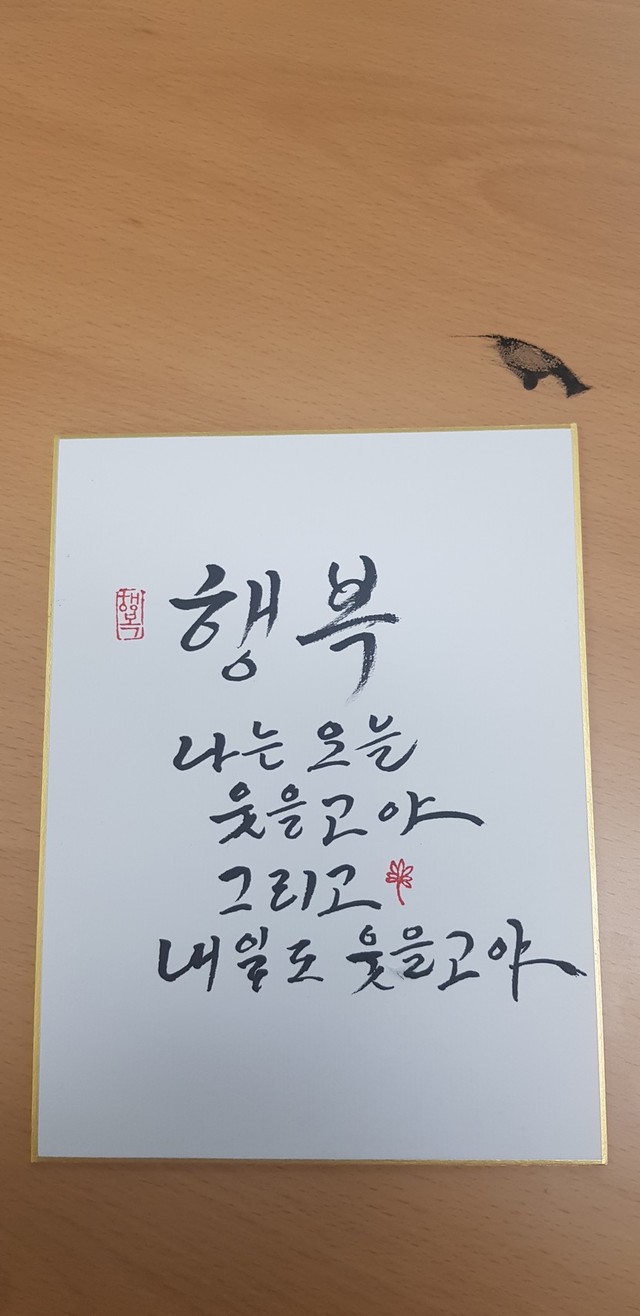 행복
행복
나는 오늘
웃을고야
그리고
내일도 웃을고야